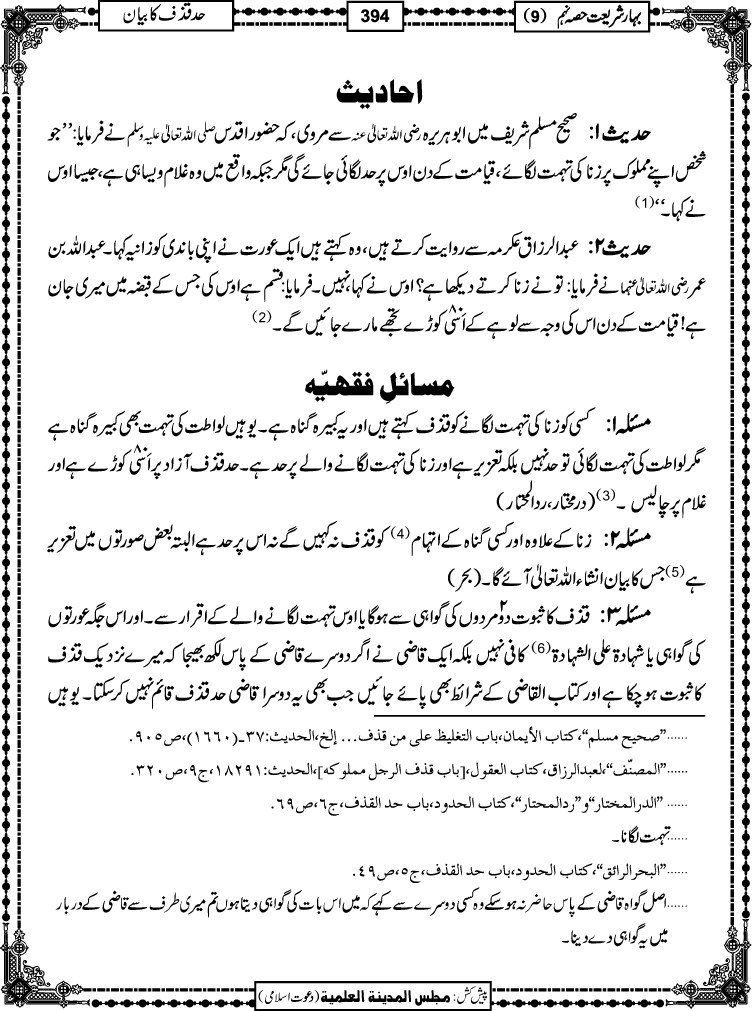 بہارِ شریعت حصہ نہم (9)
394
حد قذف کا بیان
احادیث
حدیث ۱: صحیح مسلم شریف میں ابوہریرہ رضی اللہ تعالیٰ عنہ سے مروی، کہ حضور اقدس صلی اللہ تعالیٰ علیہ وسلم نے فرمایا: ’’جو
شخص اپنے مملوک پر زنا کی تہمت لگائے، قیامت کے دن اوس پر حد لگائی جائے گی مگر جبکہ واقع میں وہ غلام ویسا ہی ہے، جیسا اوس
نے کہا۔‘‘(1)
حدیث ۲: عبدالرزاق عکرمہ سے روایت کرتے ہیں، وہ کہتے ہیں ایک عورت نے اپنی باندی کو زانیہ کہا۔ عبداللہ بن
عمر رضی اللہ تعالیٰ عنہما نے فرمایا: تو نے زنا کرتے دیکھا ہے؟ اوس نے کہا، نہیں۔ فرمایا: قسم ہے اوس کی جس کے قبضہ میں میری جان
ہے! قیامت کے دن اس کی وجہ سے لوہے کے اَسّی۸۰ کوڑے تجھے مارے جائیں گے۔(2)
مسائلِ فقهیّه
مسئلہ ۱: کسی کو زنا کی تہمت لگانے کو قذف کہتے ہیں اور یہ کبیرہ گناہ ہے۔ یوہیں لواطت کی تہمت بھی کبیرہ گناہ ہے
مگر لواطت کی تہمت لگائی تو حد نہیں بلکہ تعزیر ہے اور زنا کی تہمت لگانے والے پر حد ہے۔ حد قذف آزاد پر اَسّی۸۰ کوڑے ہے اور
غلام پر چالیس ۔(3) (درمختار، ردالمحتار)
مسئلہ ۲: زنا کے علاوہ اور کسی گناہ کے اتہام(4) کو قذف نہ کہیں گے نہ اس پر حد ہے البتہ بعض صورتوں میں تعزیر
ہے(5) جس کا بیان انشاء اللہ تعالیٰ آئے گا۔ (بحر)
مسئلہ ۳: قذف کا ثبوت دو۲ مردوں کی گواہی سے ہوگا یا اوس تہمت لگانے والے کے اقرار سے۔ اور اس جگہ عورتوں
کی گواہی یا شہادۃ علی الشہادۃ(6) کافی نہیں بلکہ ایک قاضی نے اگر دوسرے قاضی کے پاس لکھ بھیجا کہ میرے نزدیک قذف
کا ثبوت ہوچکا ہے اور کتاب القاضی کے شرائط بھی پائے جائیں جب بھی یہ دوسرا قاضی حد قذف قائم نہیں کرسکتا۔ یوہیں
......”صحيح مسلم“، كتاب الأيمان، باب التغليظ على من قذف... إلخ، الحديث: ٣٧ـ(١٦٦٠)، ص٩٠٥.
......”المصنّف“، لعبدالرزاق، كتاب العقول، [باب قذف الرجل مملوكه]، الحديث: ١٨٢٩١، ج٩، ص٣٢٠.
......”الدرالمختار“و”ردالمحتار“، كتاب الحدود، باب حد القذف، ج٦، ص٦٩.
......تہمت لگانا۔
......”البحرالرائق“، كتاب الحدود، باب حد القذف، ج٥، ص٤٩.
......اصل گواہ قاضی کے پاس حاضر نہ ہوسکے وہ کسی دوسرے سے کہے کہ میں اس بات کی گواہی دیتا ہوں تم میری طرف سے قاضی کے دربار
میں یہ گواہی دے دینا۔
پیش کش: مجلس المدینة العلمیة (دعوت اسلامی)